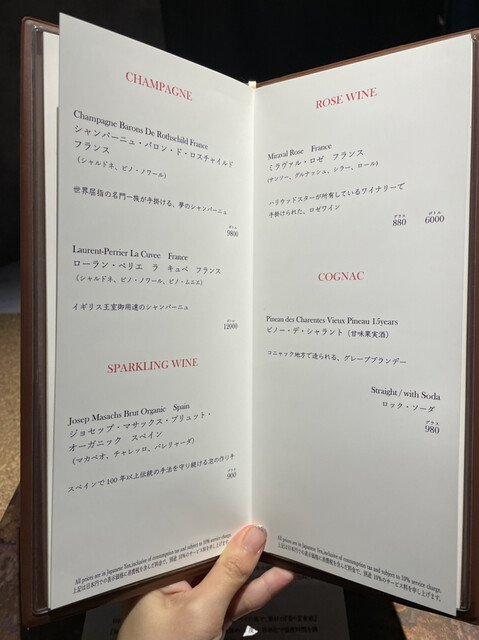 CHAMPAGNE
Champagne Barons De Rothschild France
シャンパーニュ・バロン・ド・ロスチャイルド
フランス
(シャルドネ、ピノ・ノワール)
世界屈指の名門一族が手掛ける、夢のシャンパーニュ
ボトル
9800
Laurent-Perrier La Cuvee France
ローラン・ペリエ ラ キュベ フランス
(シャルドネ、ピノ・ノワール、ピノ・ムニエ)
イギリス王室御用達のシャンパーニュ
ボトル
12000
SPARKLING WINE
Josep Masachs Brut Organic Spain
ジョセップ・マサックス・ブリュット・
オーガニック スペイン
(マカベオ、チャレッロ、パレリャーダ)
スペインで100年以上伝統の手法を守り続ける泡の作り手
グラス
900
All prices are in Japanese Yen,inclusive of consumption tax and subject to 10% service charge.
上記は日本円での表示価格に消費税を含んだ料金で、別途 10%のサービス料を申し上げます。
ROSE WINE
Miraval Rose France
ミラヴァル・ロゼ フランス
(サンソー、グルナッシュ、シラー、ロール)
ハリウッドスターが所有しているワイナリーで
手掛けられた、ロゼワイン
グラス ボトル
880 6000
COGNAC
Pineau des Charentes Vieux Pineau 15years
ピノー・デ・シャラント (甘味果実酒)
コニャック地方で造られる、グレープブランデー
Straight / with Soda
ロック・ソーダ
グラス
980
All prices are in Japanese Yen,inclusive of consumption tax and subject to 10% service charge.
上記は日本円での表示価格に消費税を含んだ料金で、別途 10%のサービス料を申し上げます。